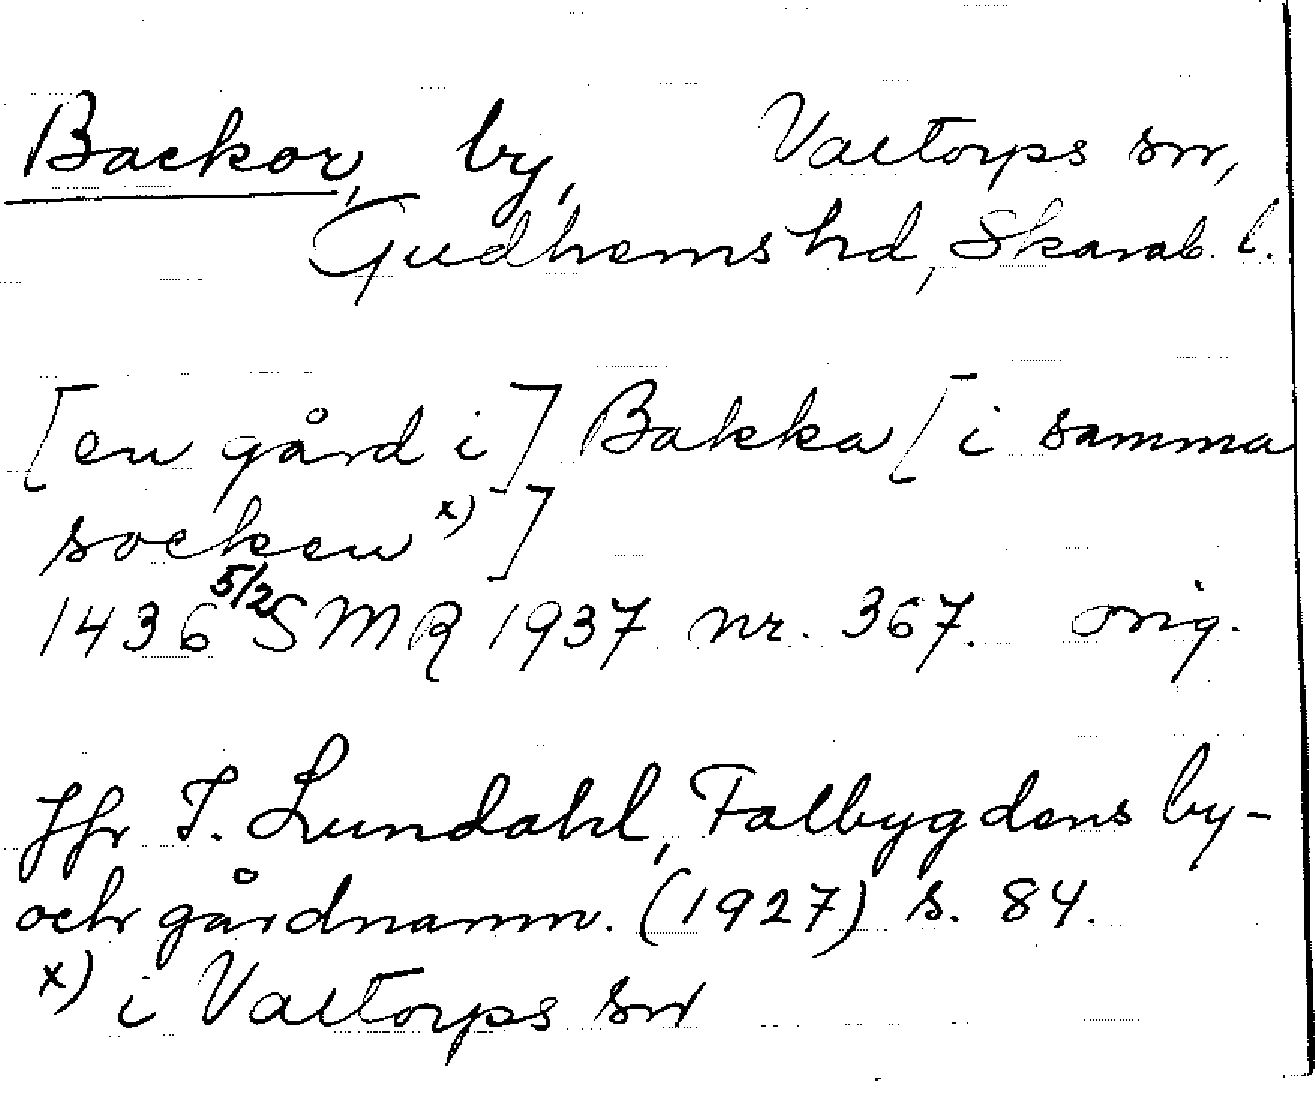 Backor, by, Valtorps sn,
Gudhems hd, Skarab. l.
[en gård i] Bakka [i samma
socken x)]
1436 5/2 SMR 1937 nr. 367. orig.
Jfr I. Lundahl, Falbygdens by-
och gårdnamn. (1927) s. 84.
x) i Valtorps sn